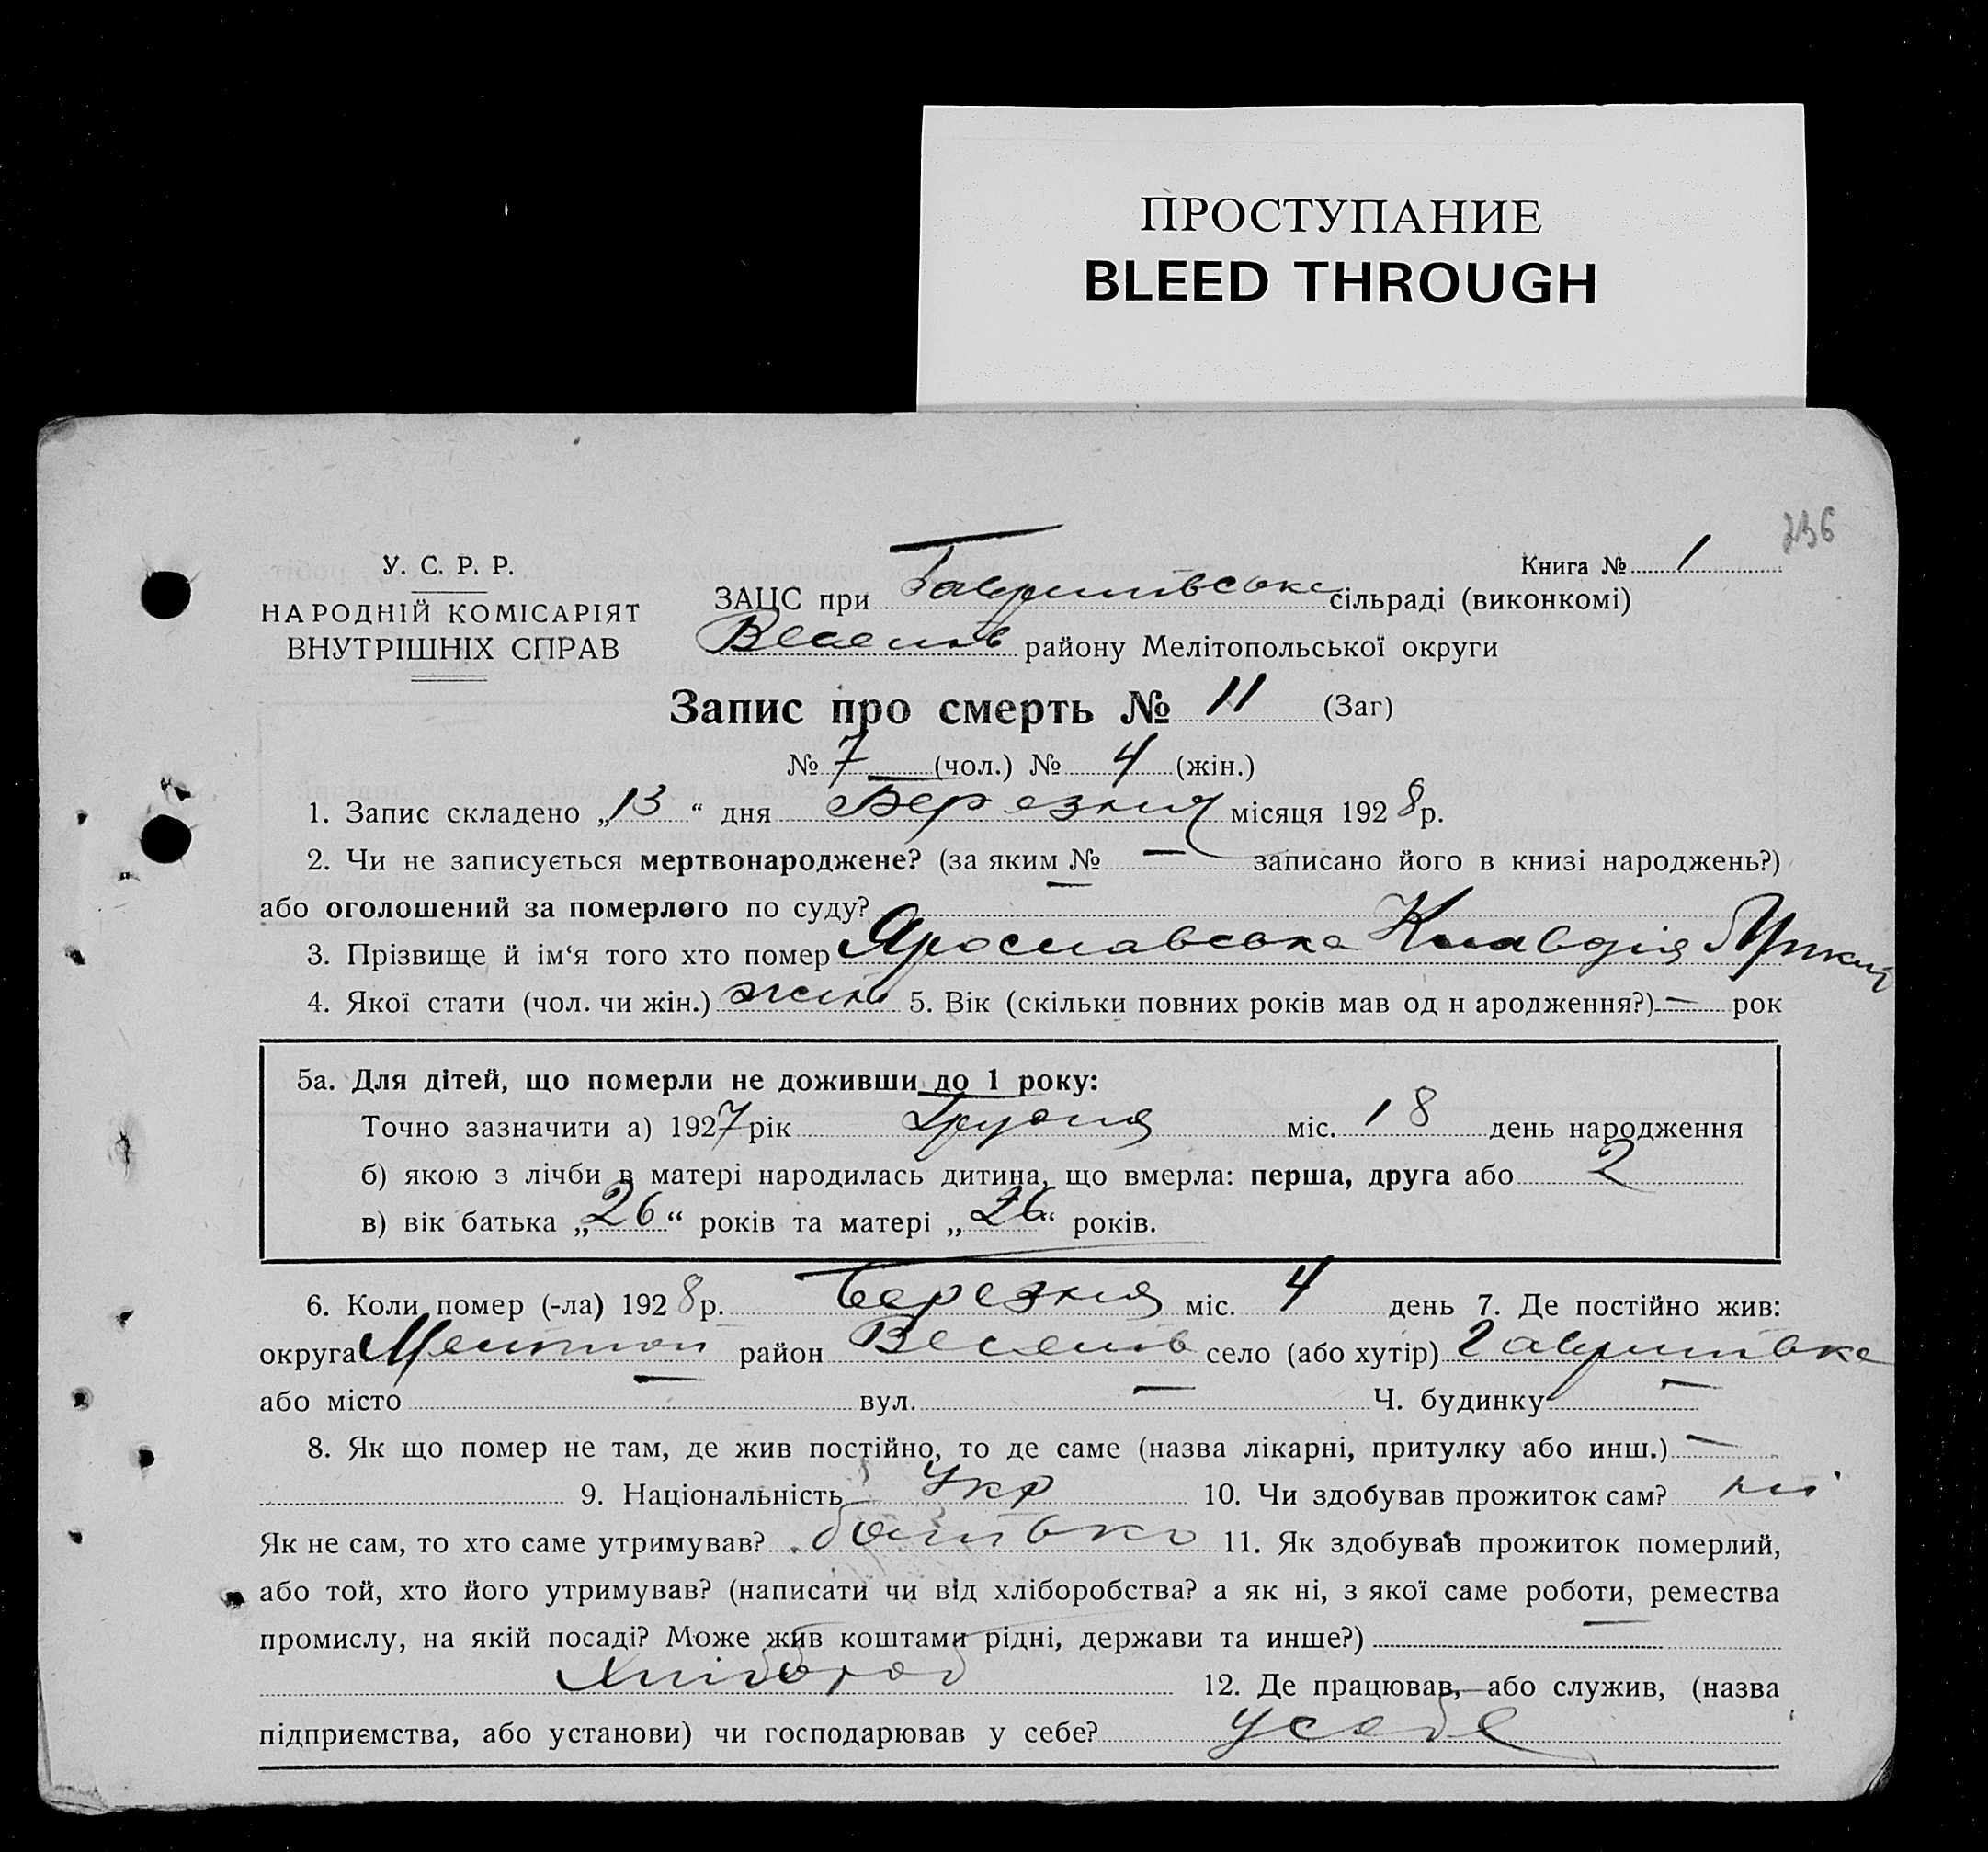 ПРОСТУПАНИЕ
BLEED THROUGH
236
У. С. Р. Р.
НАРОДНІЙ КОМІСАРІЯТ
ВНУТРІШНІХ СПРАВ
Книга № 1
ЗАЦС при Гаврилівська сільраді (виконкомі)
Веселів району Мелітопольської округи
Запис про смерть № 11 (Заг)
№ 7 (чол.) № 4 (жін.)
1. Запис складено „13“ дня Березня місяця 1928р.
2. Чи не записується мертвонароджене? (за яким № — записано його в книзі народжень?)
або оголошений за померлого по суду? —
3. Прізвище й ім‘я того хто помер Ярославська Клавдія
4. Якої стати (чол. чи жін.) жіно 5. Вік (скільки повних років мав од н ародження?) — рок
5а. Для дітей, що померли не доживши до 1 року:
Точно зазначити а) 1927 рік Грудня міс. 18 день народження
б) якою з лічби в матері народилась дитина, що вмерла: перша, друга або 2
в) вік батька „26“ років та матері „26“ років.
6. Коли помер (-ла) 1928р. Березня міс. 4 день 7. Де постійно жив:
округа Мелітоп район Веселів село (або хутір) Гаврилівка
або місто — вул. — Ч. будинку —
8. Як що помер не там, де жив постійно, то де саме (назва лікарні, притулку або инш.) —
9. Національність Укр 10. Чи здобував прожиток сам? ні
Як не сам, то хто саме утримував? батько 11. Як здобував прожиток померлий,
або той, хто його утримував? (написати чи від хліборобства? а як ні, з якої саме роботи, ремества
промислу, на якій посаді? Може жив коштами рідні, держави та инше?) —
хлібороб 12. Де працював, або служив, (назва
підприємства, або установи) чи господарював у себе? усебе